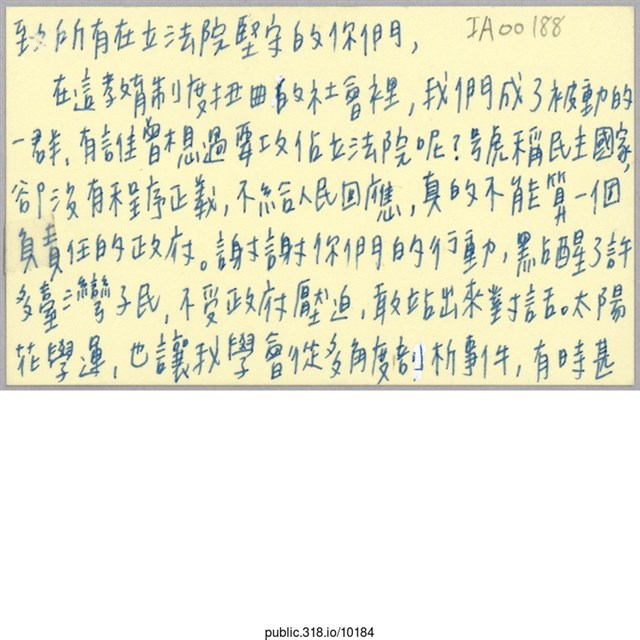 致所有在立法院堅守的你們,
IA00188
在這教育制度扭曲的社會裡,我們成了被動的
一群,有誰曾想過要攻佔立法院呢?號稱民主國家,
卻沒有程序正義,不給人民回應,真的不能算一個
負責任的政府。謝謝你們的行動,點醒了許
多臺灣子民,不受政府壓迫,敢站出來對話。太陽
花學運,也讓我學會從多角度剖析事件,有時甚
public.318.io/10184